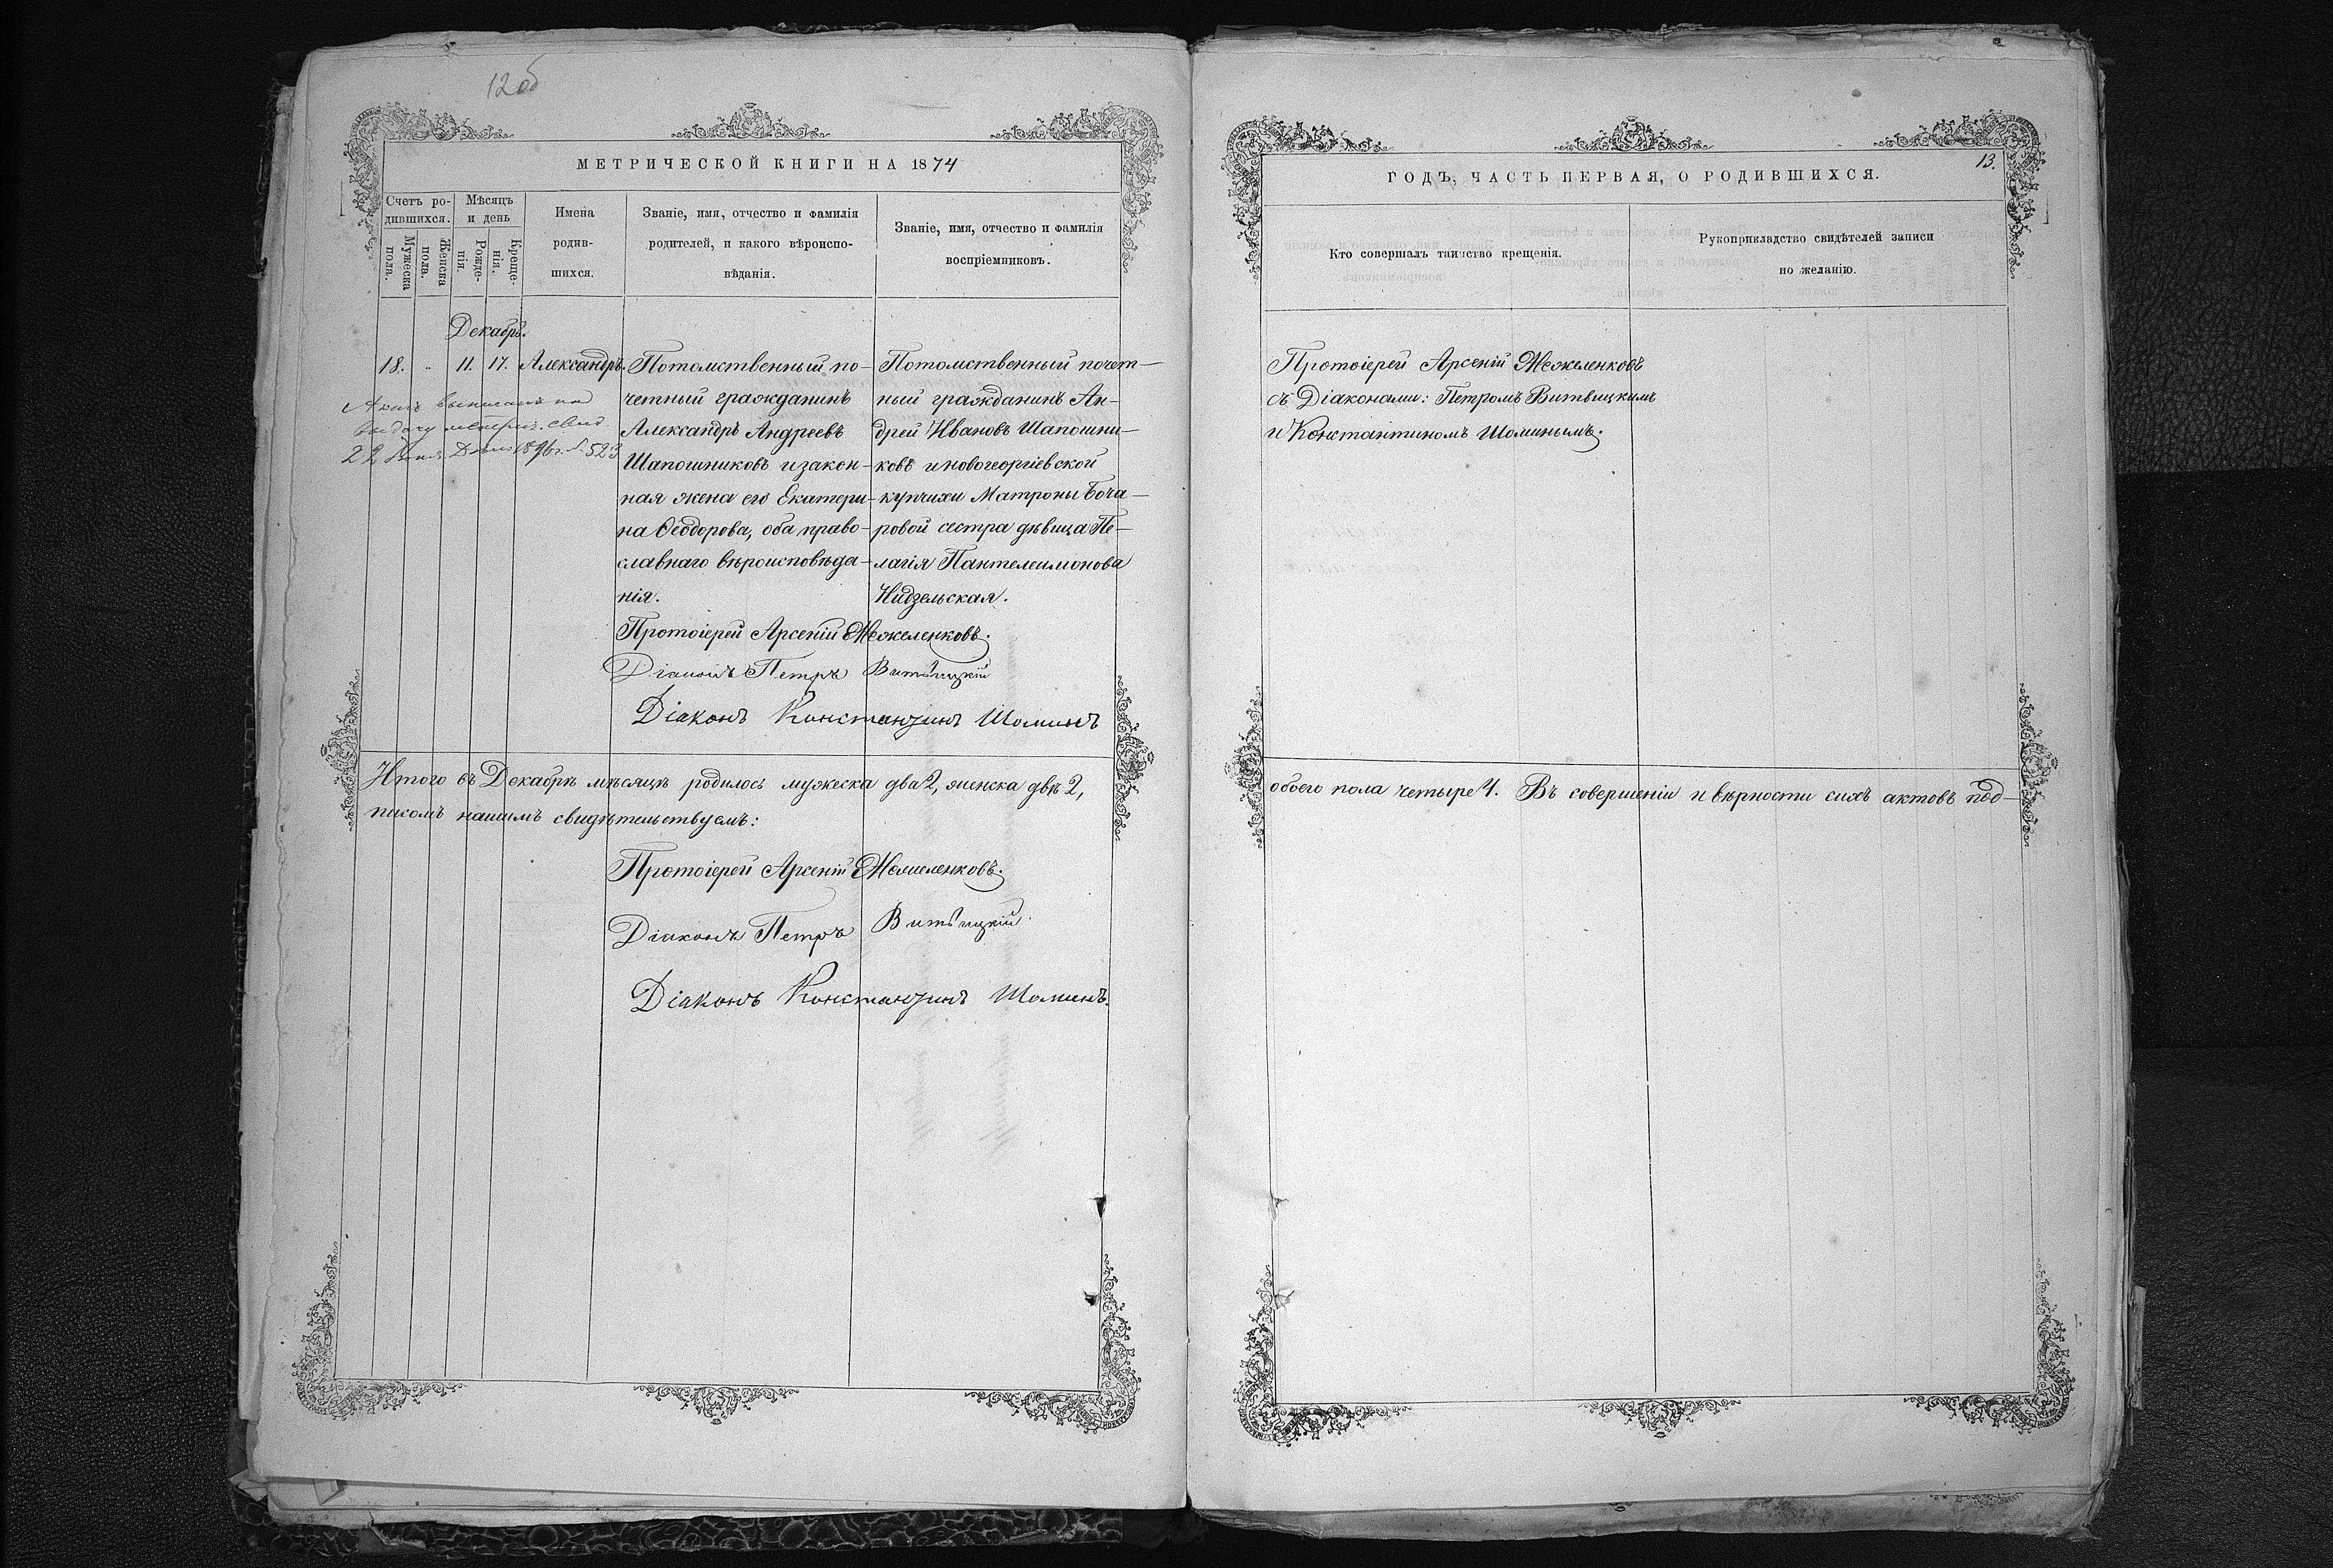 12об
МЕТРИЧЕСКОЙ КНИГИ НА 1874
Счетъ ро-
дившихся.
Мужеска
пола.
Женска
пола.
Мѣсяцъ
и день
Рожде-
нія.
Креще-
нія.
Имена
родив-
шихся.
Званіе, имя, отчество и фамилія
родителей, и какого вѣроиспо-
вѣданія.
Званіе, имя, отчество и фамилія
воспріемниковъ.
Декабрь.
18. „ 11. 17. Александръ.
выписанъ на
выдачу метрич. свид.
22 1896 г. № 523
Потомственный по-
четный гражданинъ
Александръ Андреевъ
Шапошниковъ и закон-
ная жена его Екатери-
на Ѳеодорова, оба право-
славнаго вѣроисповѣда-
нія.
Потомственный почет-
ный гражданинъ Ан-
дрей Ивановъ Шапошни-
ковъ и новогеоргіевской
купчихи Матроны Боча-
ровой сестра дѣвица Пе-
лагія Пантелеимонова
Нидзельская.
Протоіерей Арсеній Межеленковъ.
Діаконъ Петръ Витвицкій
Діаконъ Константинъ Шоминъ
Итого въ Декабрѣ мѣсяцѣ родилось мужеска два 2, женска двѣ 2,
писомъ нашимъ свидѣтельствуемъ:
Протоіерей Арсеній Межеленковъ.
Діаконъ Петръ Витвицкій
Діаконъ Константинъ Шоминъ.
13.
ГОДЪ, ЧАСТЬ ПЕРВАЯ, О РОДИВШИХСЯ.
Кто совершалъ таинство крещенія.
Рукоприкладство свидѣтелей записи
по желанію.
Протоіерей Арсеній Межеленковъ
съ Діаконами: Петромъ Витвицкимъ
и Константиномъ Шоминымъ.
обоего пола четыре 4. Въ совершеніи и вѣрности сихъ актовъ под-